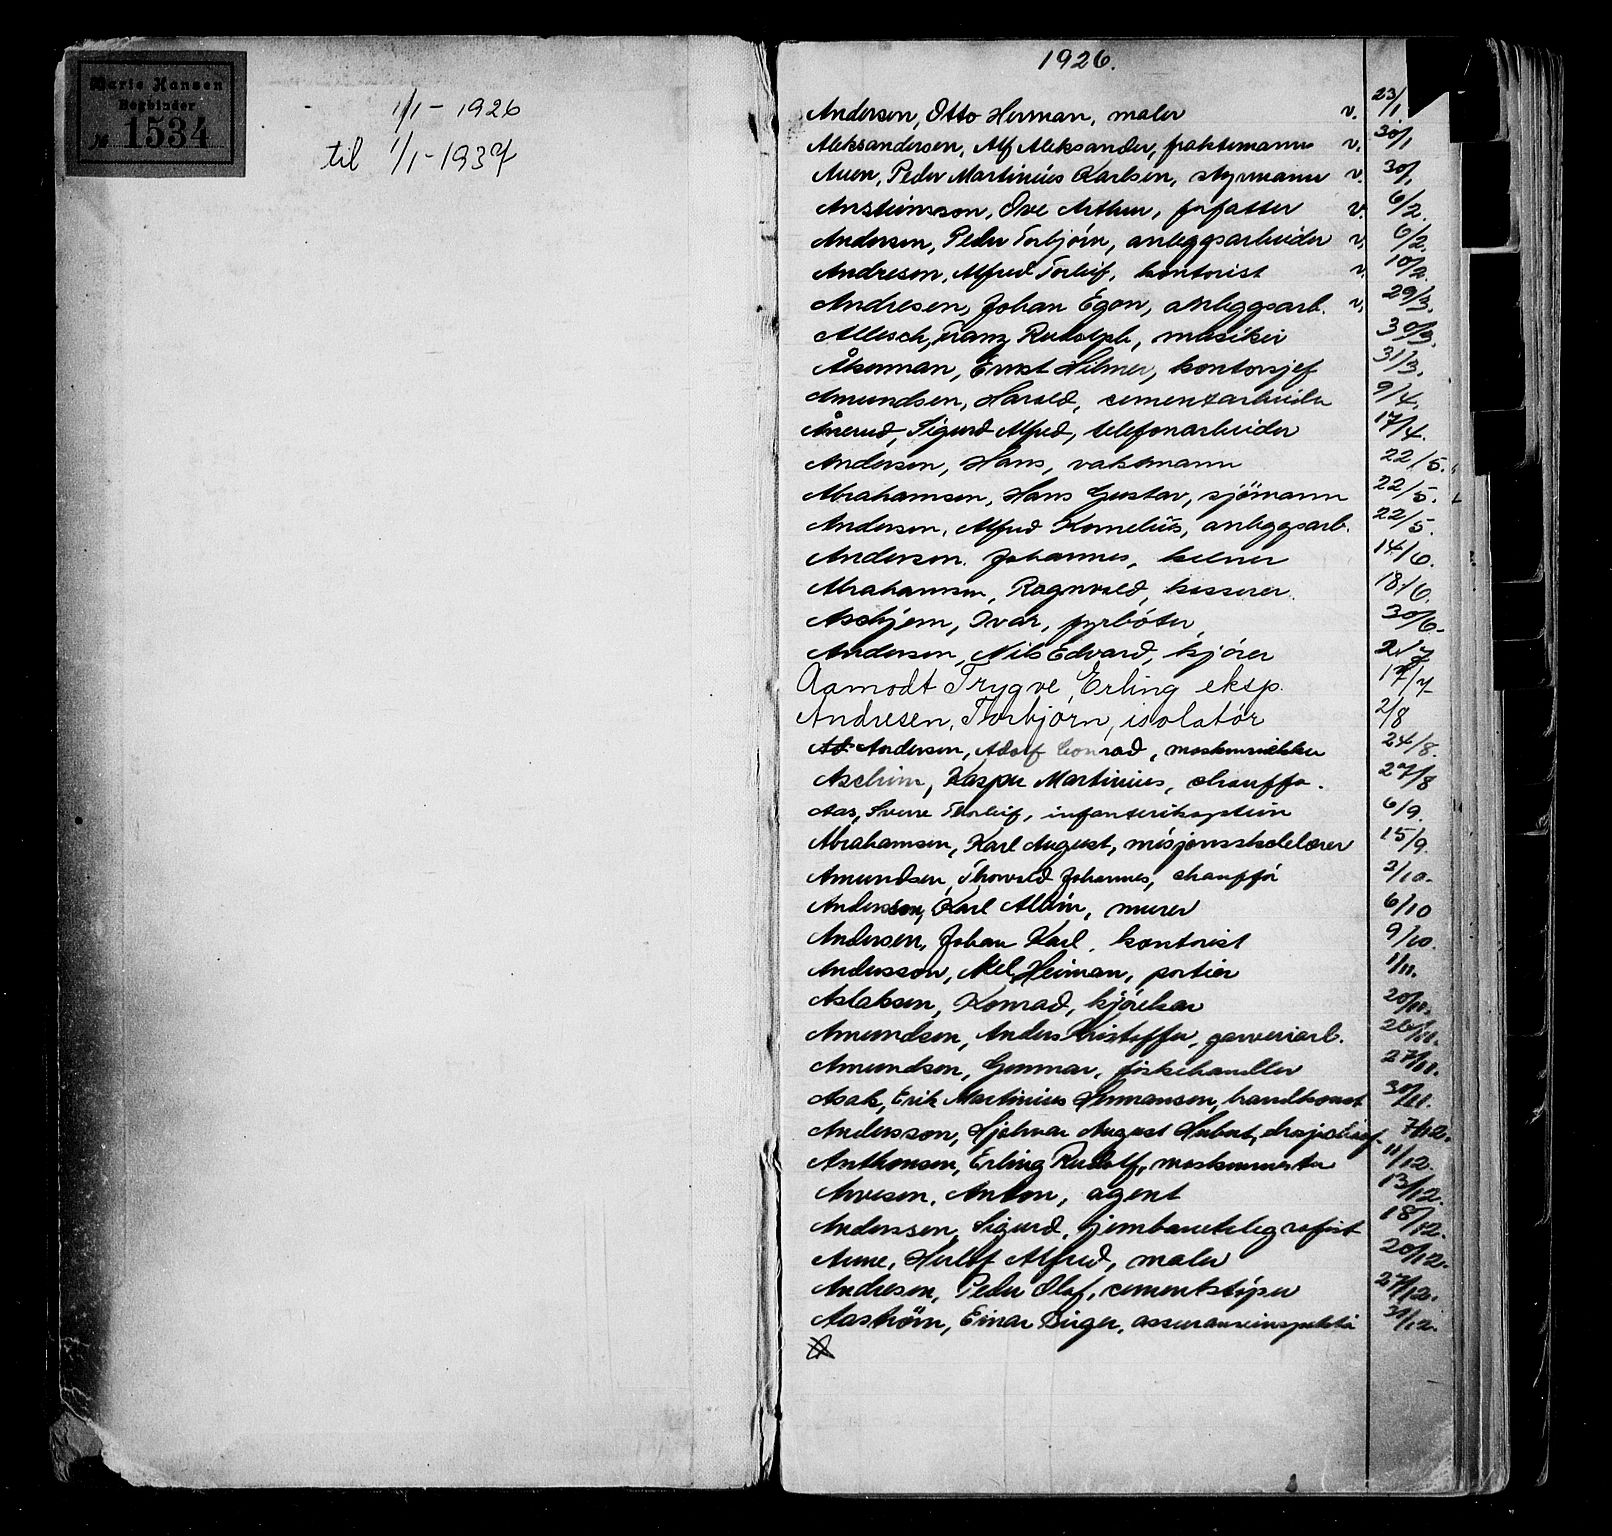 Marie Hansen
Bogbinder
№ 1534
1/1 - 1926
til 1/1 - 1937
1926.
Andersen, Otto Herman, maler v. 23/1
Aleksandersen, Alf Aleksander, fraktemann v. 30/1
Auen, Peder Martinius Karlsen, styrmann v. 30/1
Arsteinsson, Ove Arthur, forfatter v. 6/2.
Andersen, Peder Torbjørn, anleggsarbeider v. 6/2.
Andresen, Alfred Torleif, kontorist v. 10/2.
Andresen, Johan Egon, anleggsarb. v. 29/3.
Allesch, Franz Rudolph, musiker 30/3.
Åkerman, Ernst Hilmer, kontorsjef 31/3.
Amundsen, Harald, cementarbeider 9/4.
Ånerud, Sigurd Alfred, telefonarbeider 17/4.
Andersen, Hans, vaktmann 22/5.
Abrahamsen, Hans Gustav, sjömann 22/5.
Andersen, Alfred Kornelius, anleggsarb. 22/5.
Andersen. Johannes, kelner 14/6.
Abrahamsen, Ragnvald, kasserer. 18/6.
Askjem, Ivar, fyrböter 30/6.
Andersen, Nils Edvard, kjörer 2/7
Aamodt Trygve Erling eksp. 17/7
Andresen, Thorbjørn, isolatör 2/8
Andersen, Adolf Conrad, maskinsnekker 24/8.
Aschim, Kasper Martinius, chauffør. 27/8
Aas, Sverre Thorleif, infanterikaptein 6/9.
Abrahamsen, Karl August, misjonsskolelærer 15/9.
Amundsen, Thorvald Johannes, chaufför 2/10.
Andersen, Karl Albin, murer 6/10
Andersen, Johan Karl, kontorist 9/10.
Andersson, Axel Heiman, portier 1/11.
Aslaksen, Konrad, kjörekar 20/11.
Amundsen, Anders Kristoffer, garveriarb. 26/11.
Amundsen, Gunnar, fiskehandler 27/11.
Asak, Erik Martinius Hermansen, handlsmst 30/11.
Andersson, Hjalmar August Hubert, drosjechauf. 7/12.
Anthonsen, Erling Rudolf, maskinmester 11/12.
Arvesen, Anton, agent 13/12.
Anderssen, Sigurd, jernbanetelegrafist 18/12.
Aune, Herlof Alfred, maler 20/12.
Andresen, Peder Olaf, cementstöper 27/12.
Aaström, Einar Birger, assuranseinspektör 31/12.